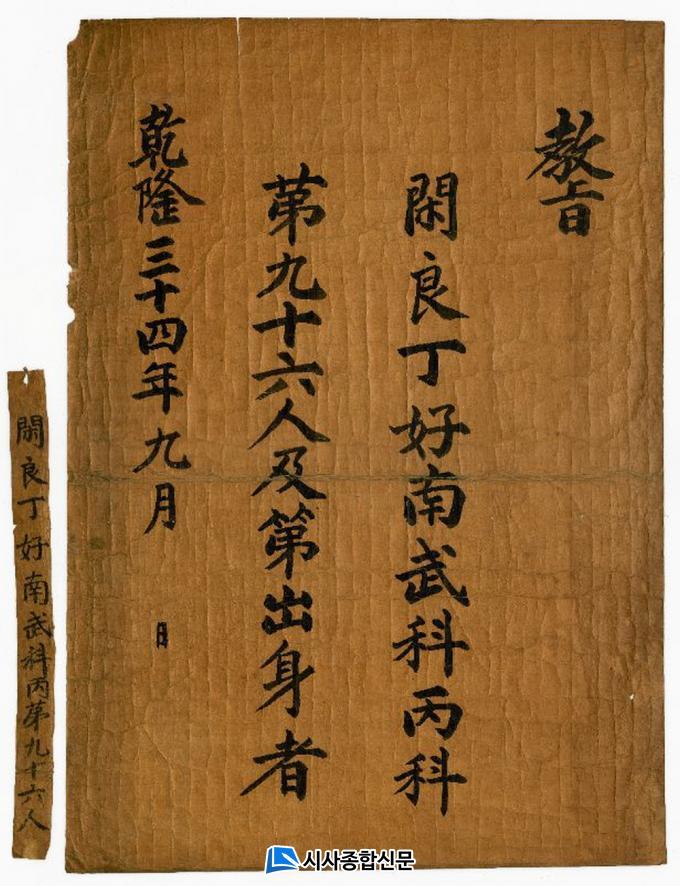 教旨
閑良丁好南武科丙科
苐九十六人及第出身者
乾隆三十四年九月 日
閑良丁好南武科丙苐九十六人
시사종합신문